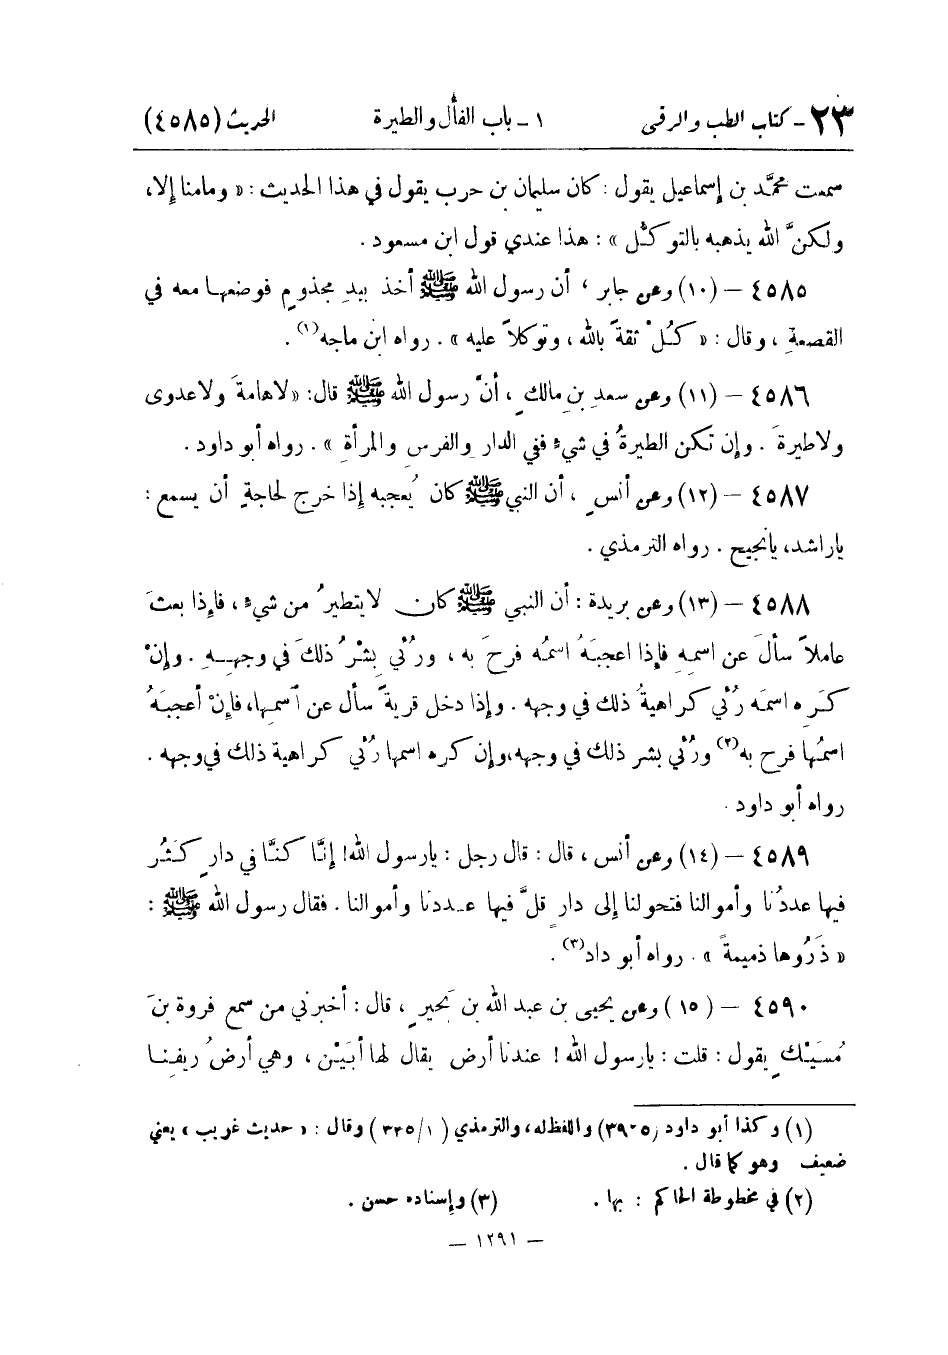 ٢٣ - كتاب الطب والرقى ١ - باب الفأل والطيرة الحديث (٤٥٨٥)
سمعت محمَّد بن إسماعيل يقول : كان سليمان بن حرب يقول في هذا الحديث : « ومامنا إلا،
ولكنَّ الله يذهبه بالتوكُّل » : هذا عندي قول ابن مسعود .
٤٥٨٥ – (١٠) وعن جابر ، أن رسول الله ﷺ أخذ بيدِ مجذومٍ فوضعها معه في
القصعةِ ، وقال : « كُلْ ثقةً بالله ، وتوكلاً عليه » . رواه ابن ماجه(١) .
٤٥٨٦ – (١١) وعن سعدِ بنِ مالكٍ ، أنَّ رسول الله ﷺ قال: «لاهامةَ ولاعدوى
ولاطيرةَ . وإن تكن الطيرةُ في شيءٍ ففي الدار والفرس والمرأةِ » . رواه أبو داود .
٤٥٨٧ – (١٢) وعن أنسٍ ، أن النبي ﷺ كان يُعجبه إذا خرج لحاجةٍ أن يسمع :
ياراشد، يانجيح . رواه الترمذي .
٤٥٨٨ – (١٣) وعن بريدة : أن النبي ﷺ كان لا يتطيرُ من شيءٍ ، فإذا بعثَ
عاملاً سألَ عن اسمِهِ فإذا اعجبَهُ اسمُه فرحَ به ، ورُئي بِشْرُ ذلكَ في وجهِهِ . وإنْ
كَرِه اسمَه رُئي كراهيةُ ذلك في وجهه . وإذا دخل قريةً سأل عن اسمِها، فإنْ أعجبَهُ
اسمُها فرح به(٢) ورُئي بشر ذلك في وجهه، وإن كره اسمها رُئي كراهية ذلك في وجهه .
رواه أبو داود .
٤٥٨٩ – (١٤) وعن أنس ، قال : قال رجل : يارسول الله! إنَّا كنَّا في دارٍ كَثُر
فيها عددُنا وأموالنا فتحولنا إلى دارٍ قلَّ فيها عددنا وأموالنا . فقال رسول الله ﷺ :
« ذَرُوها ذميمةً » . رواه أبو داد(٣) .
٤٥٩٠ – (١٥) وعن يحيى بن عبد الله بن بَحيرٍ ، قال : أخبرني من سمع فروة بنَ
مُسَيْكٍ يقول : قلت : يارسول الله ! عندنا أرض يقال لها أبَيْن ، وهي أرضُ ريفِنا
(١) وكذا أبو داود (٣٩٠٥) واللفظ له، والترمذي (٣٣٥/١) وقال : « حديث غريب » يعني
ضعيف وهو كما قال .
(٢) في مخطوطة الحاكم : بها . (٣) وإسناده حسن .
– ١٢٩١ –